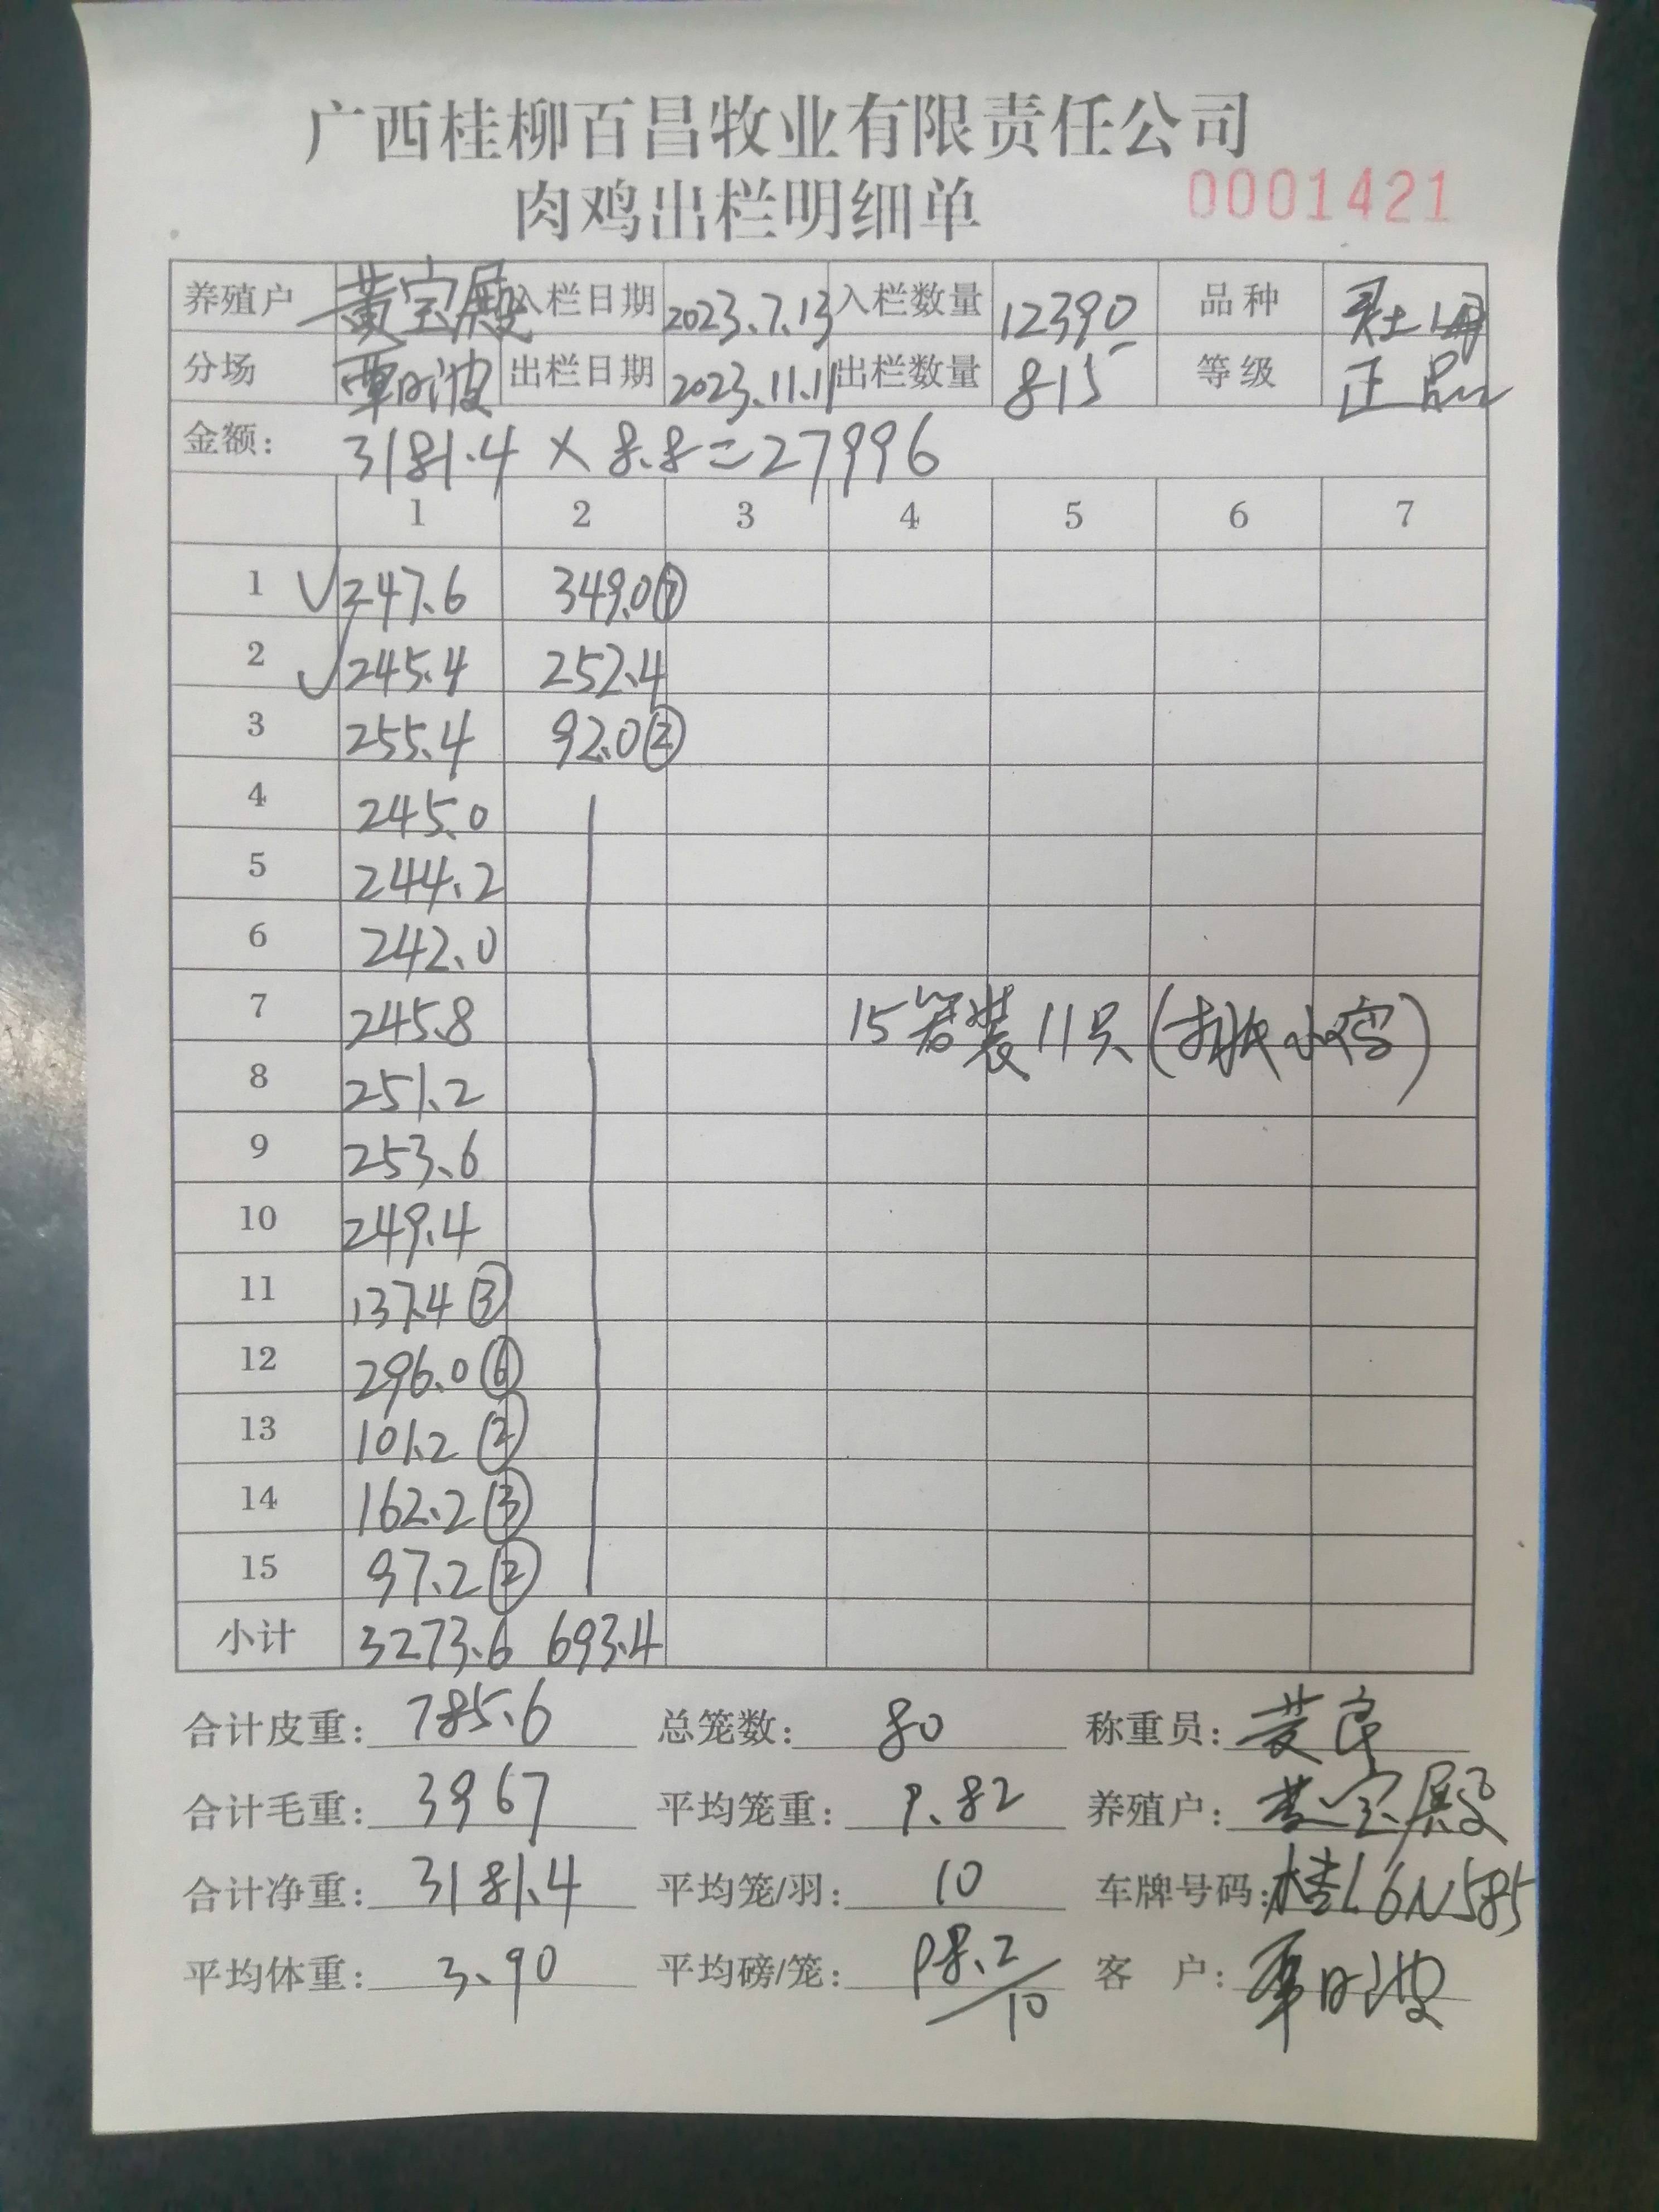 广西桂柳百昌牧业有限责任公司
肉鸡出栏明细单 0001421
养殖户 黄宝殿 入栏日期 2023.7.13 入栏数量 12390 品种 土
分场 覃时波 出栏日期 2023.11.11 出栏数量 815 等级 正品
金额: 3181.4 × 8.8=27996
1 2 3 4 5 6 7
1 ✓247.6 349.0⑦
2 ✓245.4 252.4
3 255.4 92.0②
4 245.0
5 244.2
6 242.0
7 245.8 15笼装11只(
8 251.2
9 253.6
10 249.4
11 137.4③
12 296.0⑥
13 101.2②
14 162.2③
15 97.2②
小计 3273.6 693.4
合计皮重: 785.6 总笼数: 80 称重员:
合计毛重: 3967 平均笼重: 9.82 养殖户: 黄宝殿
合计净重: 3181.4 平均笼/羽: 10 车牌号码: 桂L6N585
平均体重: 3.90 平均磅/笼: 98.2/10 客 户: 覃时波